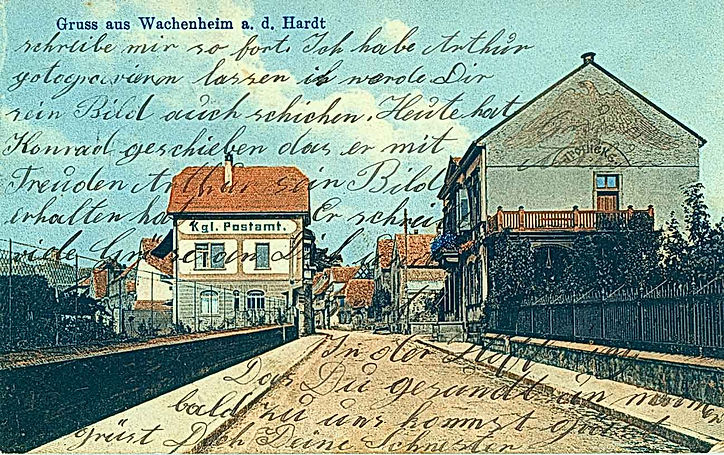 Gruss aus Wachenheim a. d. Hardt
schreibe mir so fort. Ich habe Arthur
gotograviren lassen ich werde Dir
sein Bild auch schicken. Heute hat
Konrad geschieben das er mit
Freuden Arthur sein Bild
erhalten hat Er schreib
viele
Kgl. Postamt.
In der Hoff
Das Du gesundt
bald zu uns kommst
grüst Dich Deine Schwester